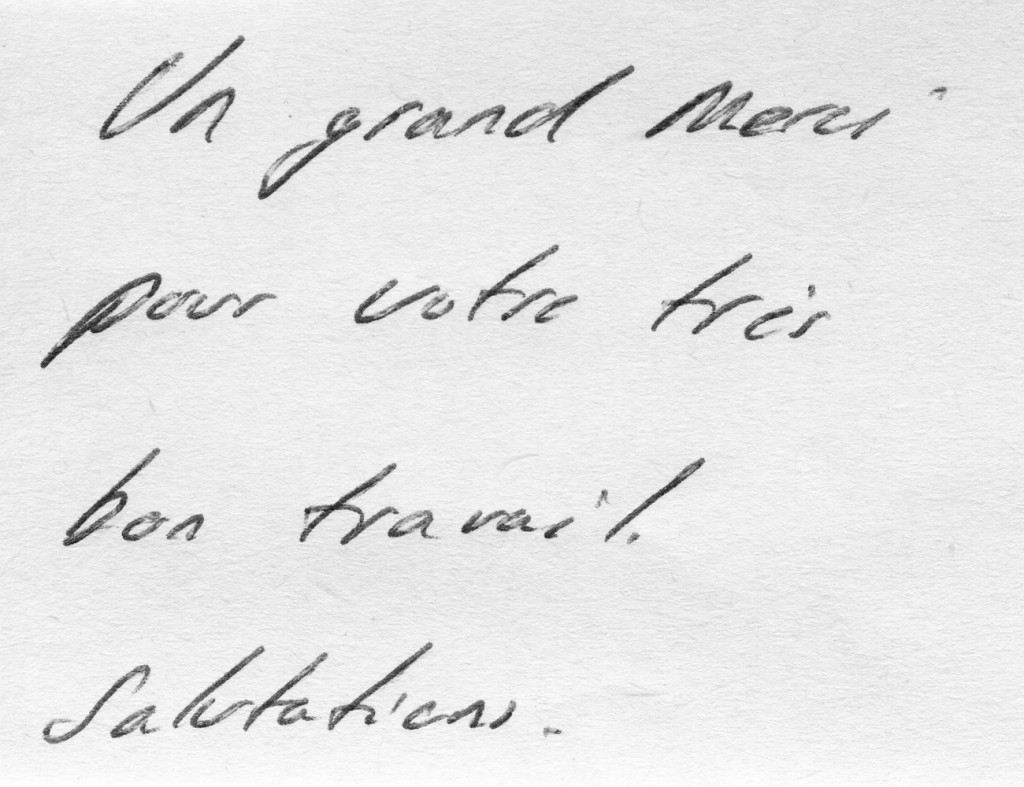 Un grand Merci
pour votre très
bon travail.
Salutations.